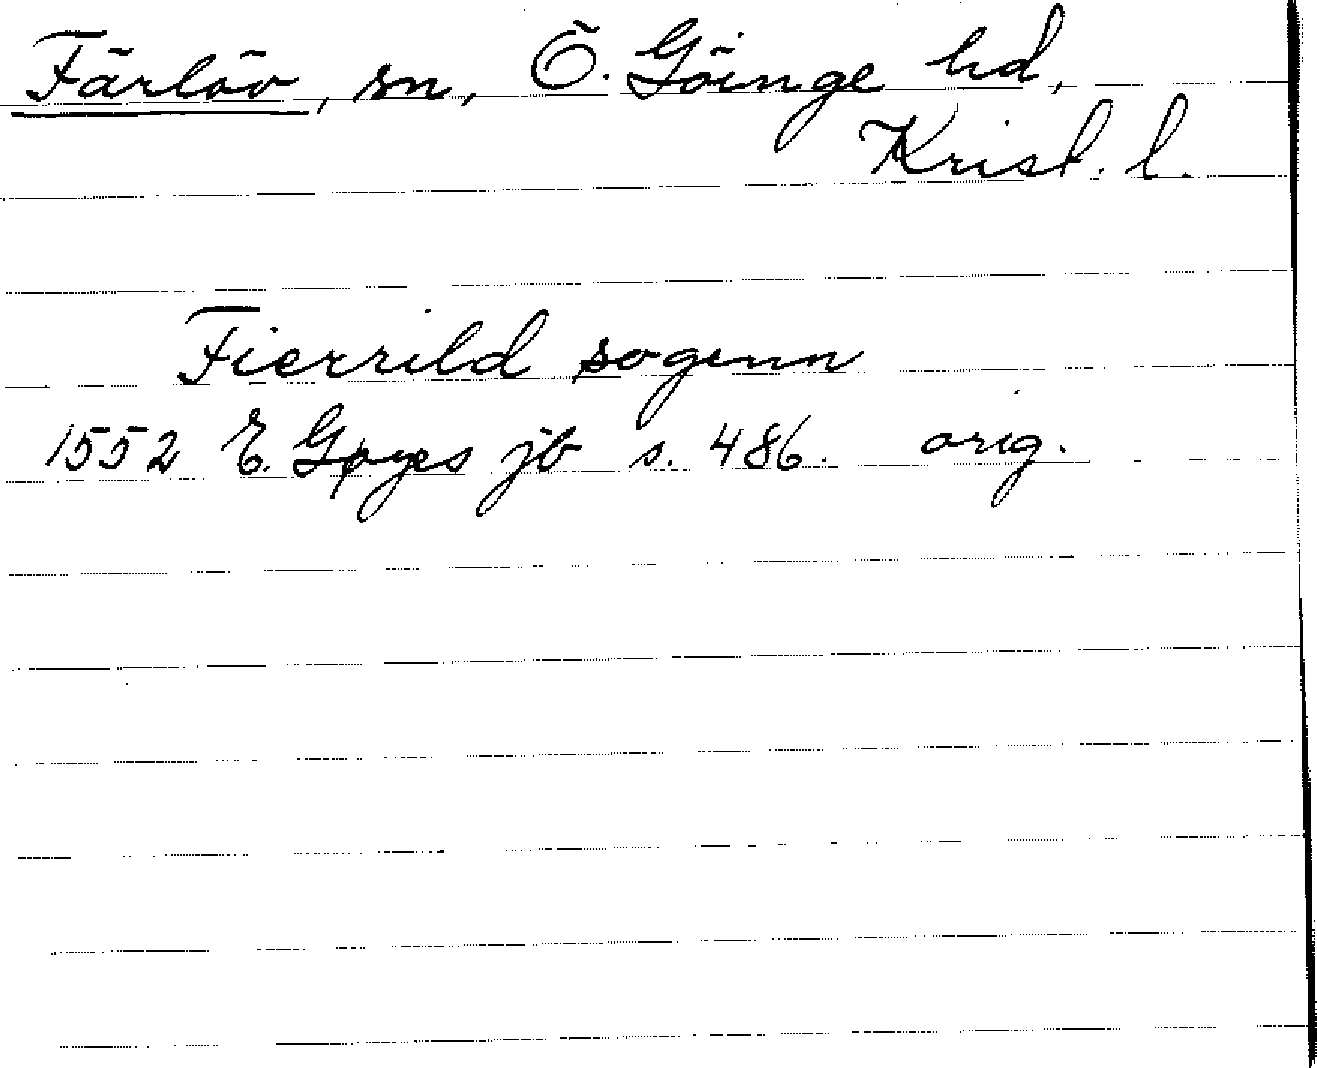 Färlöv, sn, Ö. Göinge hd,
Krist. l.
Fierrild sogenn
1552 E. Gøyes jb s. 486. orig.